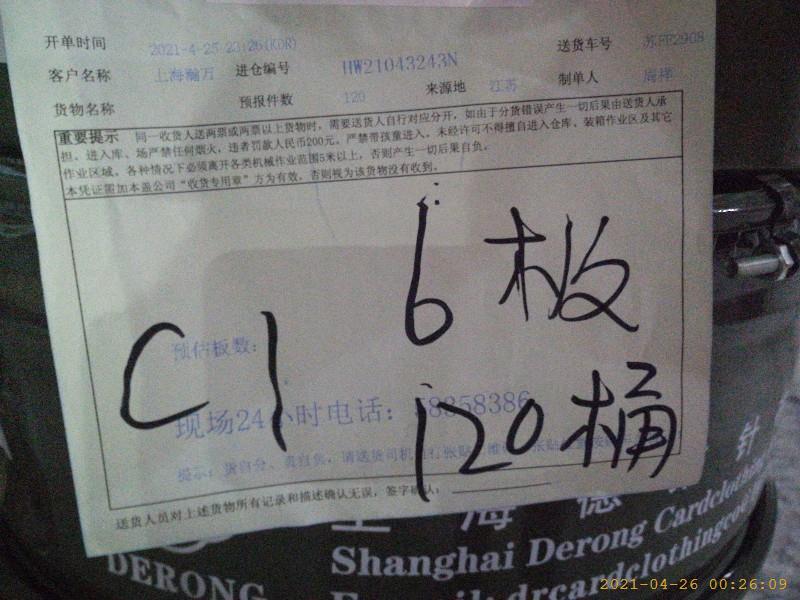 开单时间 2021-4-25 23:26(KOR) 送货车号 苏FF2908
客户名称 上海瀚万 进仓编号 HW21043243N 制单人 周祥
货物名称 预报件数 120 来源地 江苏
重要提示 同一收货人送两票或两票以上货物时，需要送货人自行对应分开，如由于分货错误产生一切后果由送货人承
担。进入库、场严禁任何烟火，违者罚款人民币200元。严禁带孩童进入。未经许可不得擅自进入仓库、装箱作业区及其它
作业区域。各种情况下必须离开各类机械作业范围5米以上，否则产生一切后果自负。
本凭证需加本盖公司“收货专用章”方为有效，否则视为该货物没有收到。
6板
C1
预估板数：
现场24小时电话：58358386
120桶
提示：货自分、责自负，请送货司机
送货人员对上述货物所有记录和描述确认无误，签字确认：
上海德 针
DERONG
Shanghai Derong Cardclothing
drcardclothing
2021-04-26 00:26:09